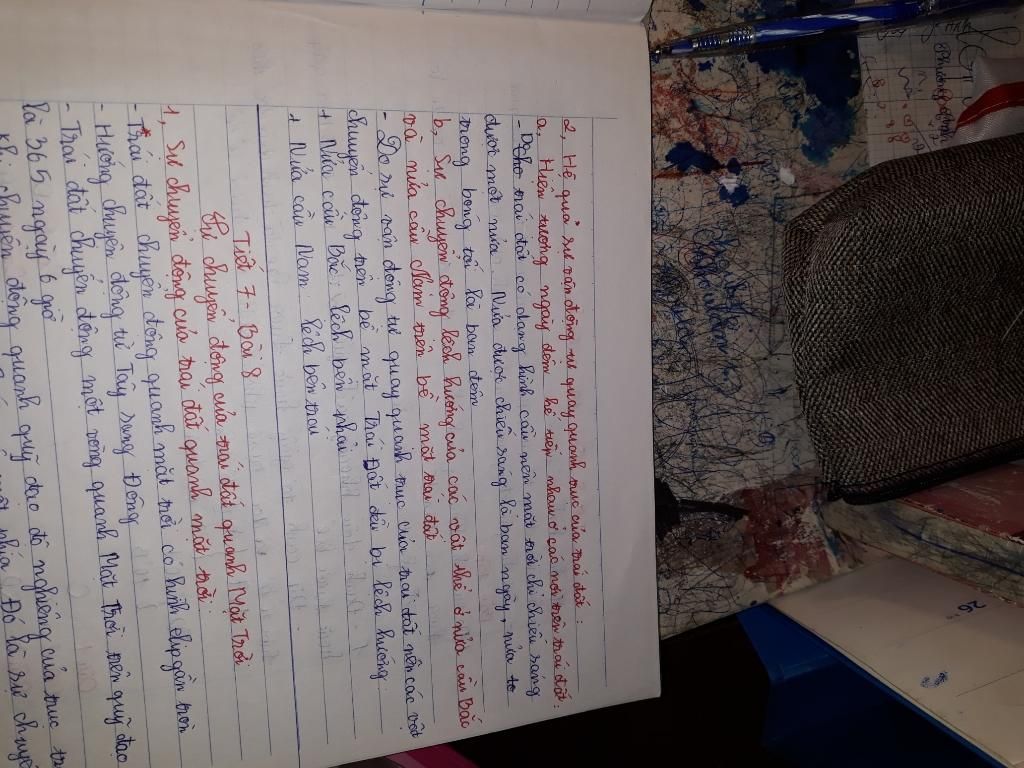 2, Hệ quả sự vận động tự quay quanh trục của trái đất:
a, Hiện tượng ngày đêm kế tiếp nhau ở các nơi trên trái đất:
- Do trái đất có dạng hình cầu nên mặt trời chỉ chiếu sáng
được một nửa. Nửa được chiếu sáng là ban ngày, nửa
trong bóng tối là ban đêm
b, Sự chuyển động lệch hướng của các vật thể ở nửa cầu Bắc
và nửa cầu Nam trên bề mặt trái đất
- Do sự vận động tự quay quanh trục của trái đất nên các vật
chuyển động trên bề mặt Trái Đất đều bị lệch hướng.
+ Nửa cầu Bắc: lệch bên phải
+ Nửa cầu Nam: lệch bên trái
Tiết 7 - Bài 8
Sự chuyển động của trái đất quanh Mặt Trời
1, Sự chuyển động của trái đất quanh mặt trời
- Trái đất chuyển động quanh mặt trời có hình elip gần tròn
- Hướng chuyển động từ Tây sang Đông
- Trái đất chuyển động một vòng quanh Mặt Trời trên quỹ đạo
là 365 ngày 6 giờ
khi chuyển động quanh quỹ đạo độ nghiêng của trục
phía. Đó là sự
26